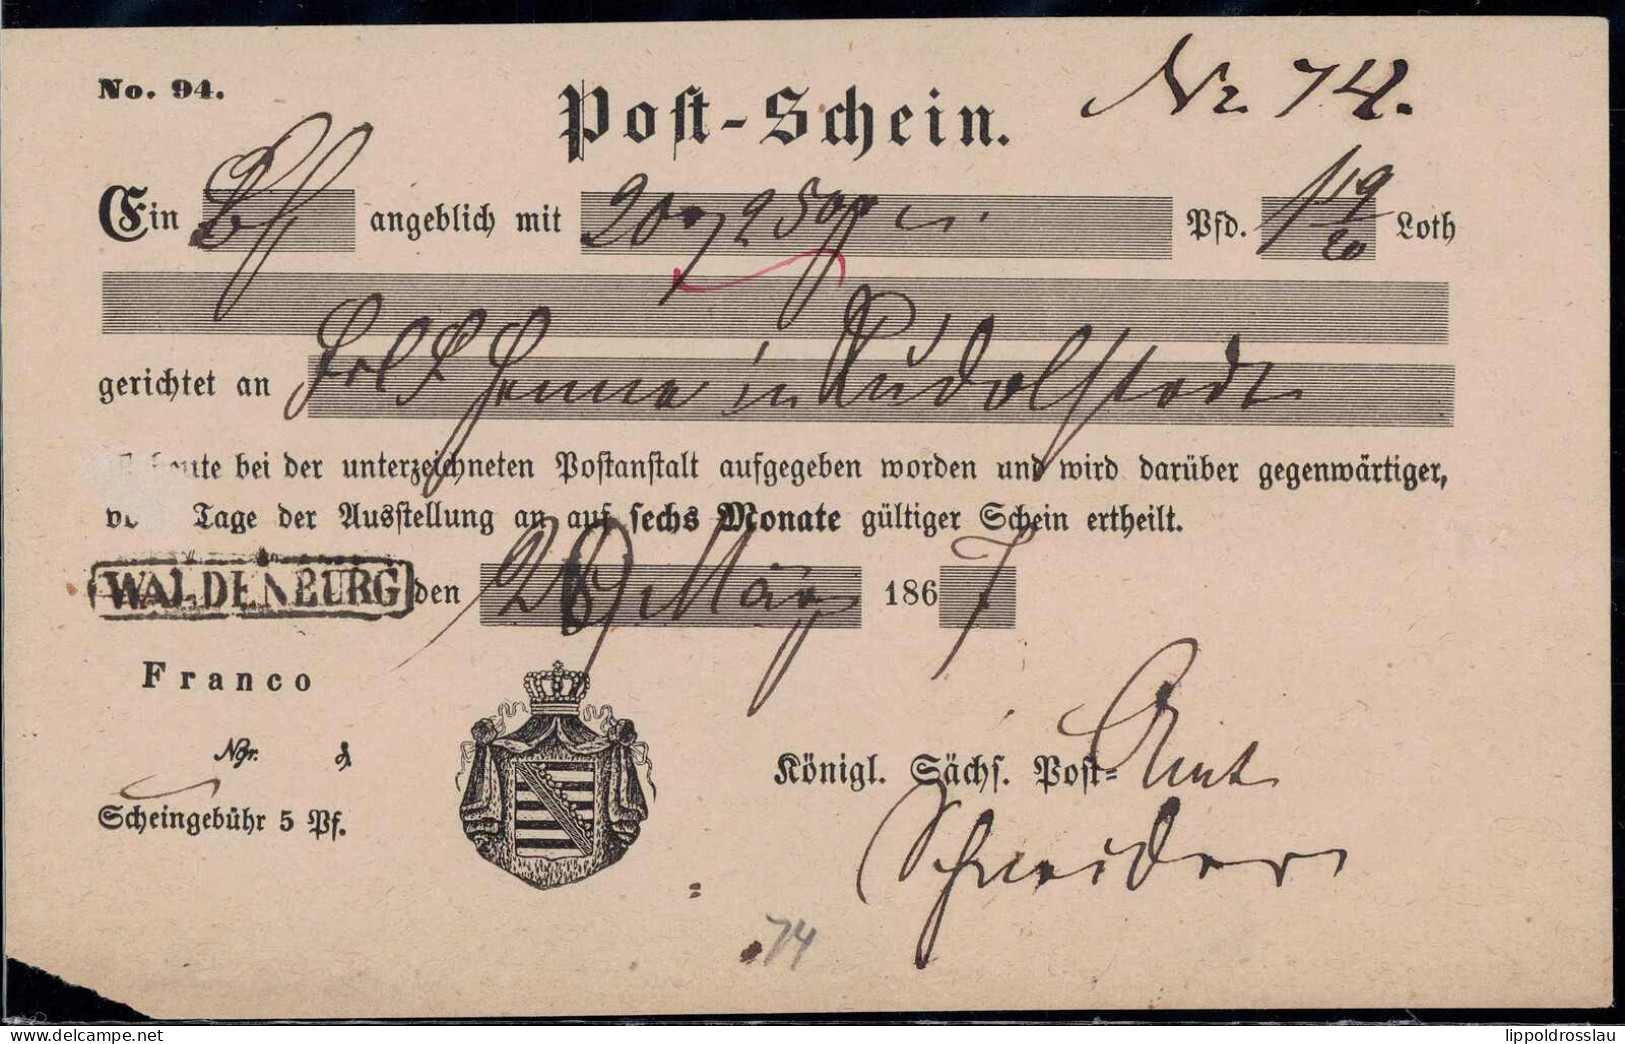 No. 94.
Post-Schein.
Nr. 74.
Ein Bf angeblich mit Pfd. Loth
gerichtet an Henne in Rudolstadt
heute bei der unterzeichneten Postanstalt aufgegeben worden und wird darüber gegenwärtiger,
Tage der Ausstellung an auf sechs Monate gültiger Schein ertheilt.
WALDENBURG den März 1867
Franco
Ngr. ₰
Königl. Sächs. Post-Amt
Scheingebühr 5 Pf.
Schneider
74
lippoldrosslau